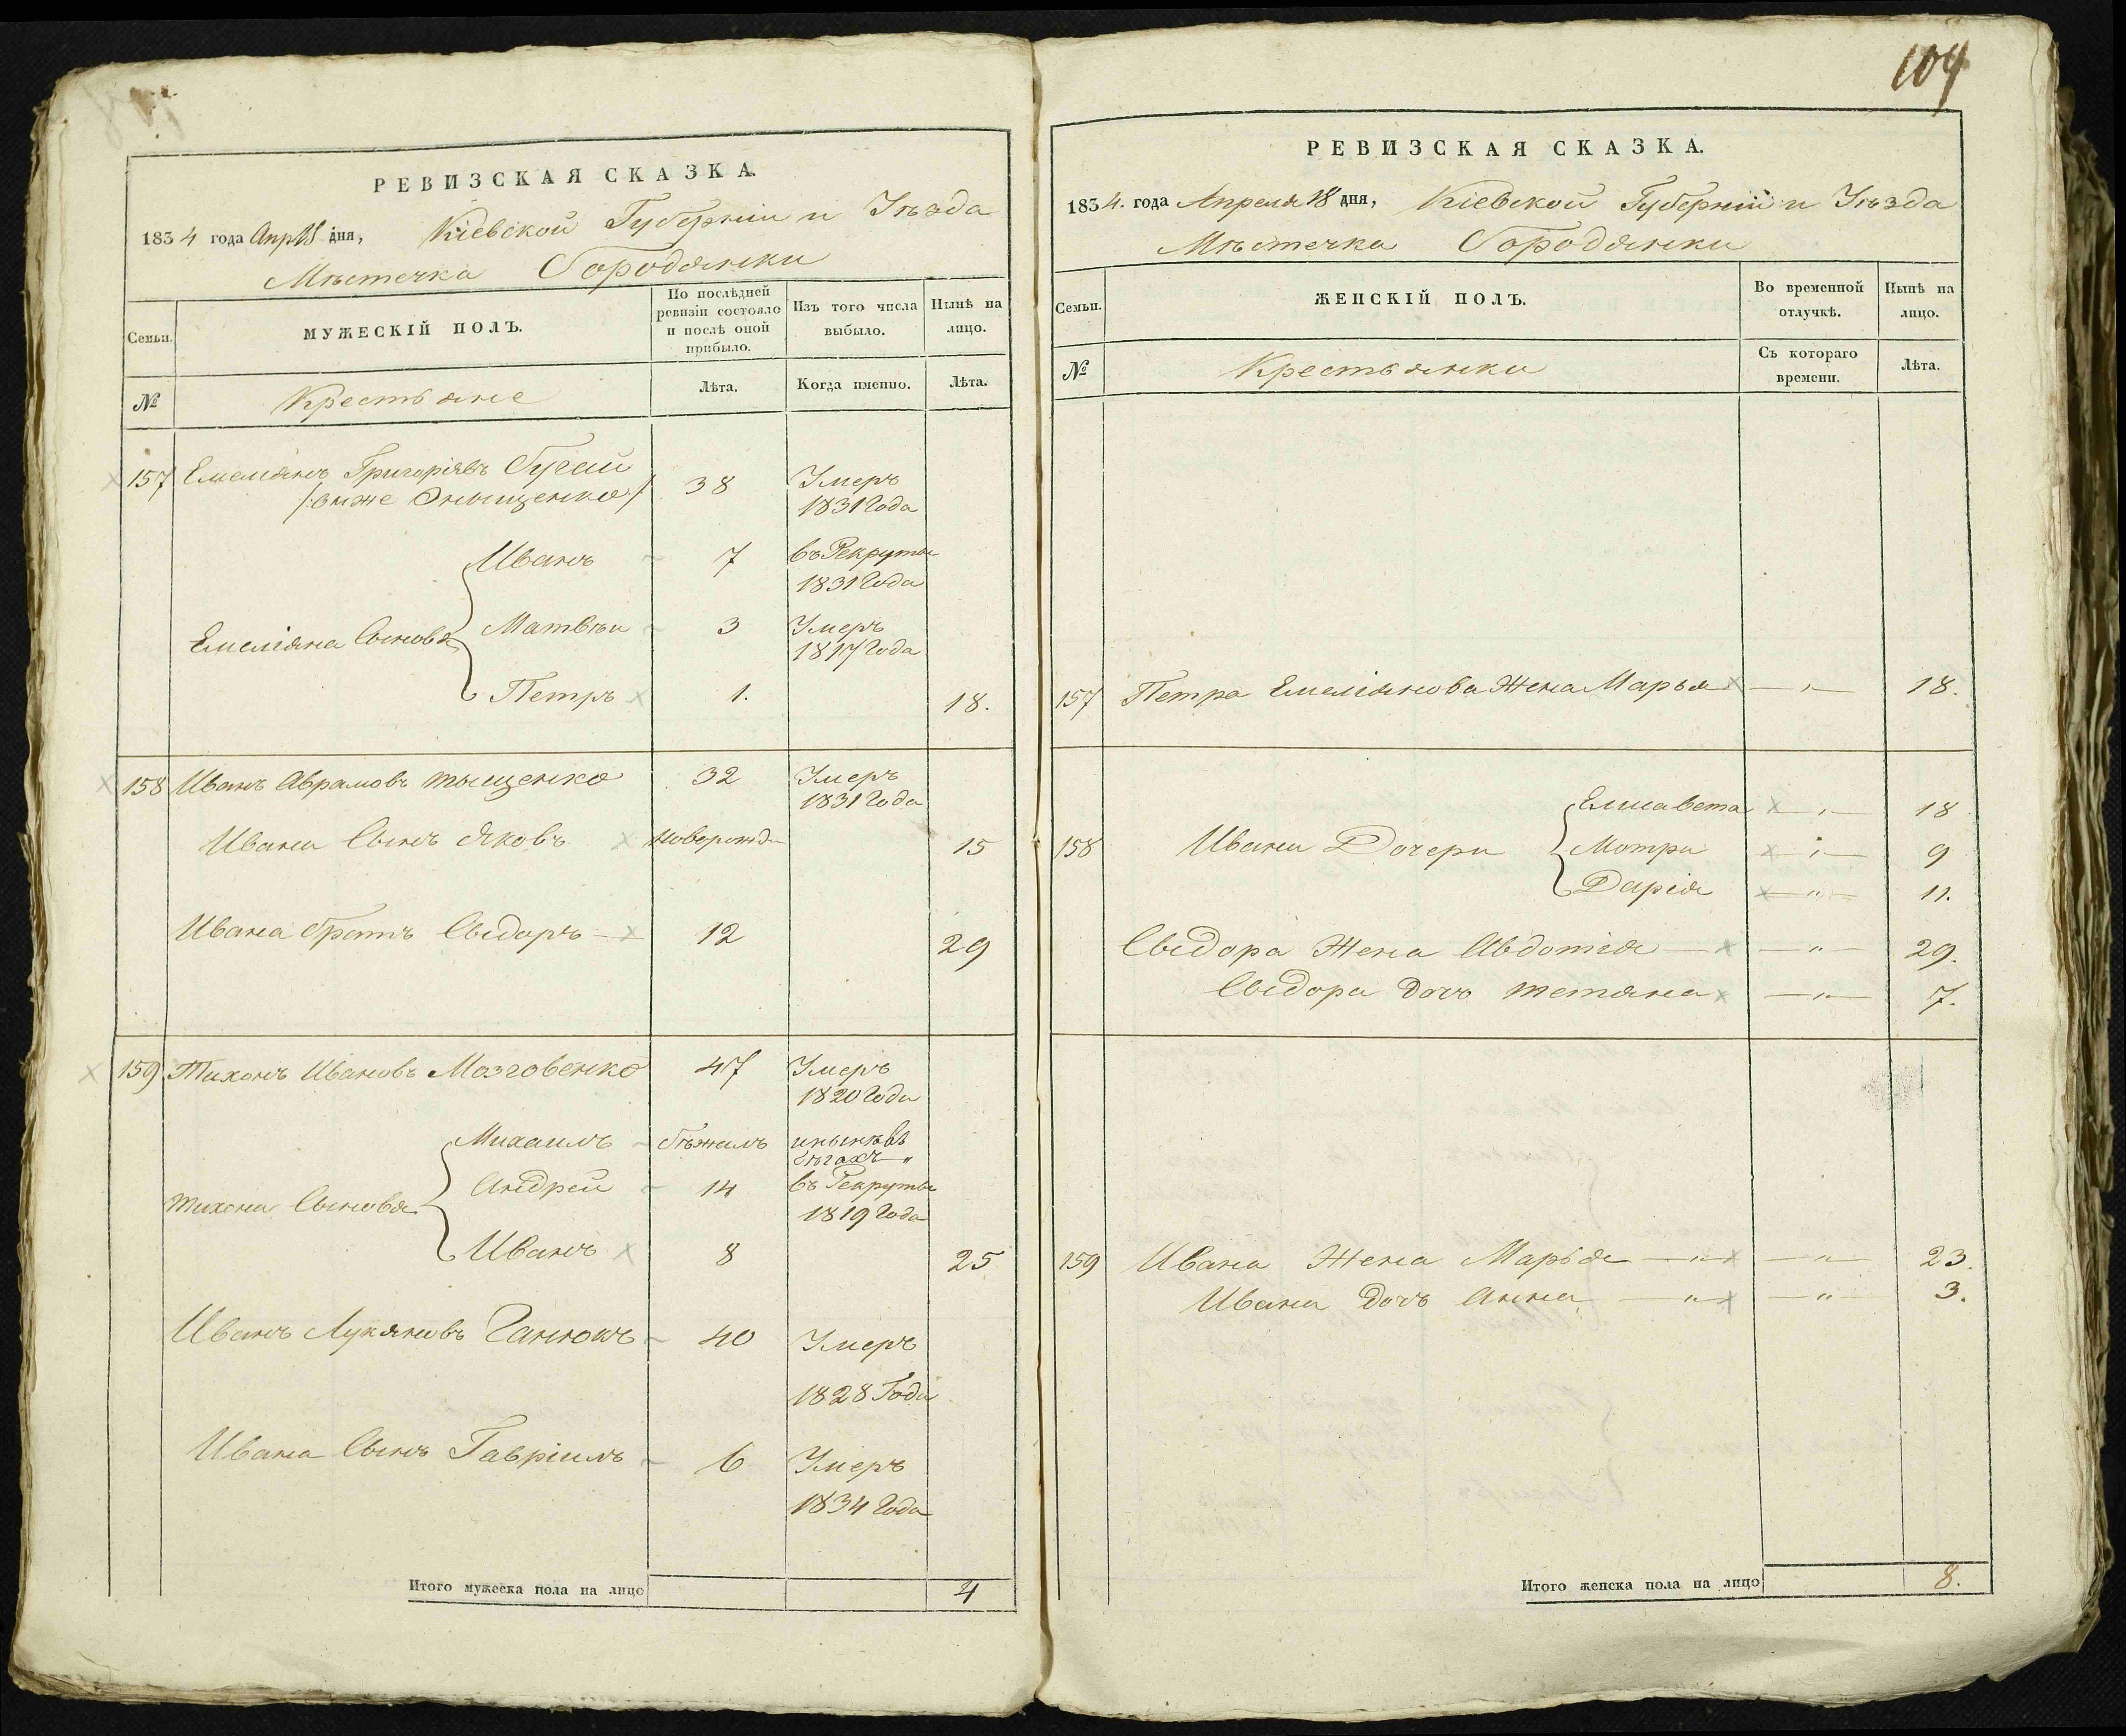 104
РЕВИЗСКАЯ СКАЗКА.
1834 года Апр 18 дня, Кіевской Губерніи и Уѣзда
Мѣстечка Бородянки
Семьи.
МУЖЕСКІЙ ПОЛЪ.
По послѣдней ревизіи состояло и послѣ оной прибыло.
Изъ того числа выбыло.
Нынѣ на лицо.
№
Крестьяне
Лѣта.
Когда именно.
Лѣта.
157 Емеліянъ Григоріявъ Бугай 38 Умеръ
/:онже Онищенко:/ 1831 Года
Иванъ 7 въ Рекруты
1831 Года
Емеліяна Сыновя Матвѣи 3 Умеръ
1817 Года
Петръ 1. 18.
158 Иванъ Аврамовъ Тыщенко 32 Умеръ
1831 Года
Ивана Сынъ Яковъ новорожд 15
Ивана братъ Сыдоръ 12 29
159 Тихонъ Ивановъ Мозговенко 47 Умеръ
1820 Года
Михаилъ бѣжалъ инынѣвъ
бѣгахъ "
Тихона Сыновя Андрей 14 въ Рекруты
1819 Года
Иванъ 8 25
Иванъ Лукяновъ Ганюкъ 40 Умеръ
1828 Года
Ивана Сынъ Гавріилъ 6 Умеръ
1834 Года
Итого мужеска пола на лицо 4
РЕВИЗСКАЯ СКАЗКА.
1834. года Апреля 18 дня, Кіевской Губерніи и Уѣзда
Мѣстечка Бородянки
Семьи.
ЖЕНСКІЙ ПОЛЪ.
Во временной отлучкѣ.
Нынѣ на лицо.
№
Крестьянки
Съ котораго времени.
Лѣта.
157 Петра Емеліянова Жена Марья — " — 18.
Елисавета — " — 18
158 Ивана Дочери Мотра — " — 9
Дарія — " — 11.
Сыдора Жена Авдотія — " — 29.
Сыдора дочь Тетяна — " — 7.
159 Ивана Жена Марья — " — — " — 23.
Ивана дочь Анна — " — — " — 3.
Итого женска пола на лицо 8.